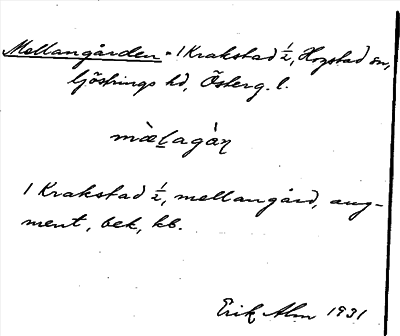 Mellangården = 1 Krakstad ½, Hogstad sn,
Göstrings hd, Österg. l.
mæ̀lagàɳ
1 Krakstad ½, mellangård, aug-
ment, bek, kb.
Erik Alm 1931